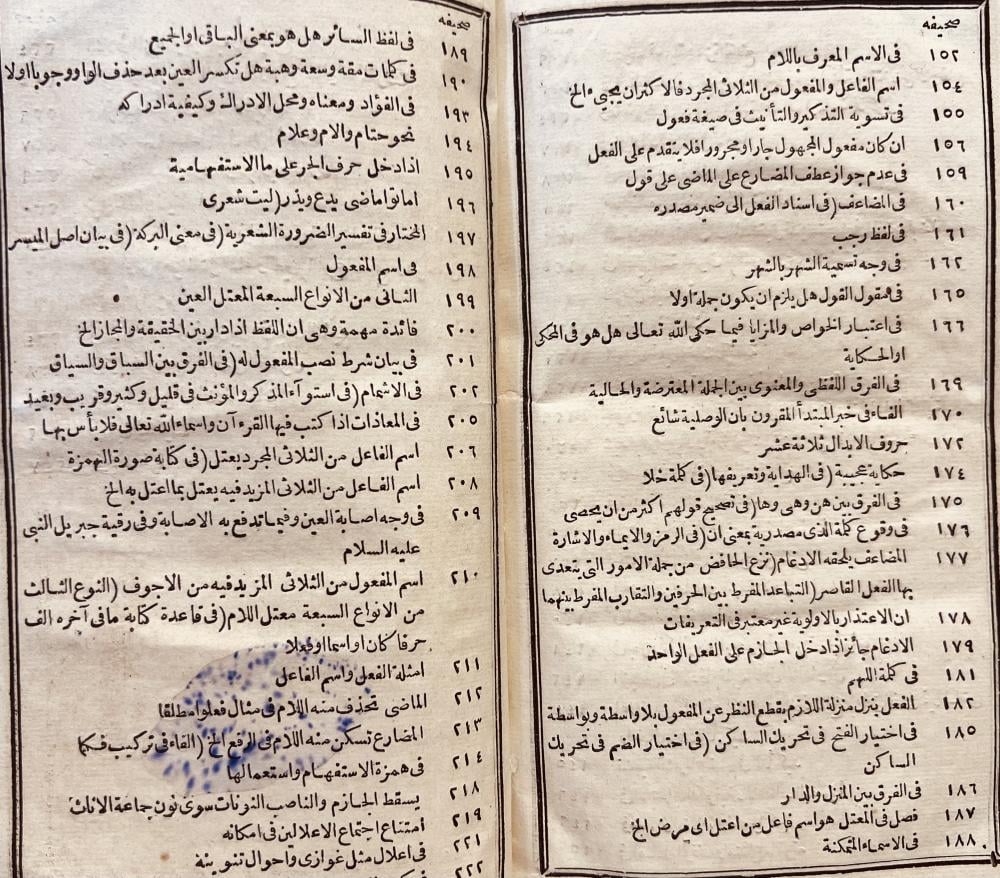 صحيفه
١٥٢ فى الاسم المعرف باللام
١٥٤ اسم الفاعل والمفعول من الثلاثى المجرد فالاكثر ان يجىء الخ
١٥٥ فى تسوية التذكير والتأنيث فى صيغة فعول
١٥٦ ان كان مفعول المجهول جارا ومجرورا فلا يتقدم على الفعل
١٥٩ فى عدم جواز عطف المضارع على الماضى على قول
١٦٠ فى المضاعف (فى اسناد الفعل الى ضمير مصدره
١٦١ فى لفظ رجب
١٦٢ فى وجه تسمية الشهر بالشهر
١٦٥ فى مقول القول هل يلزم ان يكون جملة اولا
١٦٦ فى اعتبار الخواص والمزايا فيما حكى الله تعالى هل هو فى المحكى
اوالحكاية
١٦٩ فى الفرق اللفظى والمعنوى بين الجملة المعترضة والحالية
١٧٠ الفاء فى خبر المبتدأ المقرون بان الوصلية شائع
١٧٢ حروف الابدال ثلاثة عشر
١٧٤ حكاية عجيبة (فى الهداية وتعريفها (فى كلمة خلا
١٧٥ فى الفرق بين هن وهى وها (فى تصحيح قولهم اكثر من ان يحصى
١٧٦ فى وقوع كلمة الذى مصدرية بمعنى ان (فى الرمز والايماء والاشارة
١٧٧ المضاعف يلحقه الادغام (نزع الخافض من جملة الامور التى يتعدى
بها الفعل القاصر (التباعد المفرط بين الحرفين والتقارب المفرط بينهما
١٧٨ ان الاعتذار بالاولوية غير معتبر فى التعريفات
١٧٩ الادغام جائز اذا دخل الجازم على الفعل الواحد
١٨١ فى كلمة اللهم
١٨٢ الفعل ينزل منزلة اللازم بقطع النظر عن المفعول بلا واسطة وبواسطة
١٨٥ فى اختيار الفتح فى تحريك الساكن (فى اختيار الضم فى تحريك
الساكن
١٨٦ فى الفرق بين المنزل والدار
١٨٧ فصل فى المعتل هو اسم فاعل من اعتل اى مرض الخ
١٨٨ فى الاسماء المتمكنة
صحيفه
١٨٩ فى لفظ السائر هل هو بمعنى الباقى او الجميع
١٩٠ فى كلمات مقة وسعة وهبة هل تكسر العين بعد حذف الواو وجوبا اولا
١٩٣ فى الفؤاد ومعناه ومحل الادراك وكيفية ادراكه
١٩٤ نحو حتام والام وعلام
١٩٥ اذا دخل حرف الجر على ما الاستفهامية
١٩٦ اماتوا ماضى يدع ويذر (ليت شعرى
١٩٧ المختار فى تفسير الضرورة الشعرية (فى معنى البركة (فى بيان اصل الميسر
١٩٨ فى اسم المفعول
١٩٩ الثانى من الانواع السبعة المعتل العين
٢٠٠ فائدة مهمة وهى ان اللفظ اذا دار بين الحقيقة والمجاز الخ
٢٠١ فى بيان شرط نصب المفعول له (فى الفرق بين السباق والسياق
٢٠٢ فى الاشمام (فى استوآء المذكر والمؤنث فى قليل وكثير وقريب وبعيد
٢٠٥ فى المعاذات اذا كتب فيها القرءآن واسماء الله تعالى فلا بأس بها
٢٠٦ اسم الفاعل من الثلاثى المجرد يعتل (فى كتابة صورة الهمزة
٢٠٨ اسم الفاعل من الثلاثى المزيد فيه يعتل بما اعتل به الخ
٢٠٩ فى وجه اصابة العين وفيما تدفع به الاصابة وفى رقية جبريل النبى
عليه السلام
٢١٠ اسم المفعول من الثلاثى المزيد فيه من الاجوف (النوع الثالث
من الانواع السبعة معتل اللام (فى قاعدة كتابة ما فى آخره الف
حرفا كان او اسما او فعلا
٢١١ امثلة الفعل واسم الفاعل
٢١٢ الماضى تحذف منه اللام فى مثال فعلوا مطلقا
٢١٣ المضارع تسكن منه اللام فى الرفع الخ (الفاء فى تركيب فكما
٢١٤ فى همزة الاستفهام واستعمالها
٢١٨ يسقط الجازم والناصب النونات سوى نون جماعة الاناث
٢١٩ امتناع اجتماع الاعلالين فى امكانه
٢٢١ فى اعلال مثل غوازى واحوال تنوينه
٢٢٢